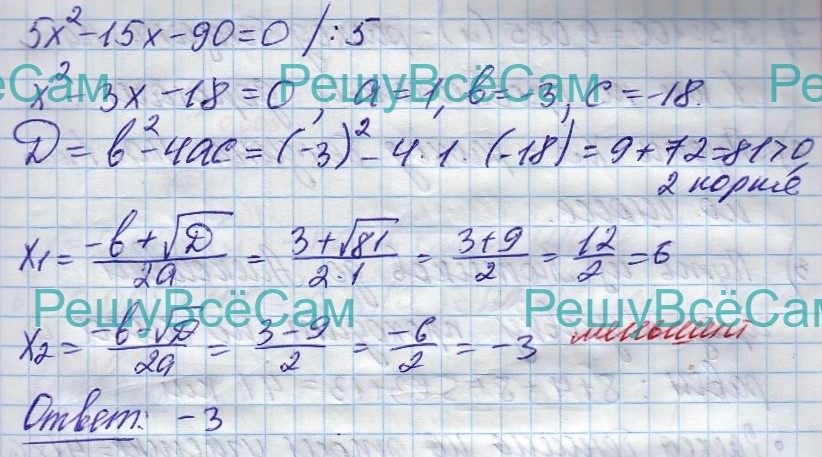 5x²-15x-90=0 /:5
x²-3x-18=0, a=1, b=-3, c=-18.
D=b²-4ac=(-3)²-4·1·(-18)=9+72=81>0
2 корня
x₁=(-b+√D)/2a=(3+√81)/2·1=(3+9)/2=12/2=6
РешуВсёСам РешуВсёСам
x₂=(-b-√D)/2a=(3-9)/2=-6/2=-3 меньший
Ответ: -3